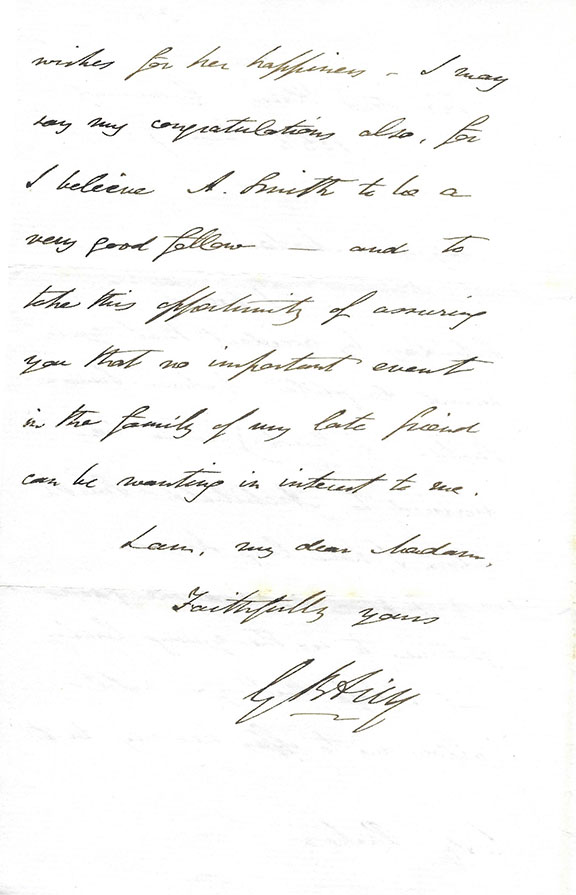 wishes for her happiness – I may
say my congratulations also, for
I believe A. Smith to be a
very good fellow — and to
take this opportunity of assuring
you that no important event
in the family of my late friend
can be wanting in interest to me.
I am, my dear Madam,
Faithfully yours
G B Airy